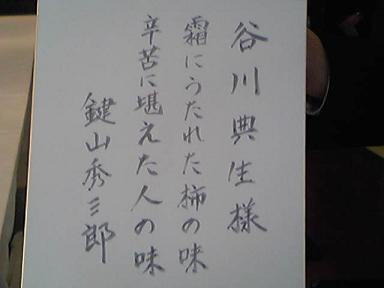 谷川典生様
霜にうたれた柿の味
辛苦に堪えた人の味
鍵山秀三郎